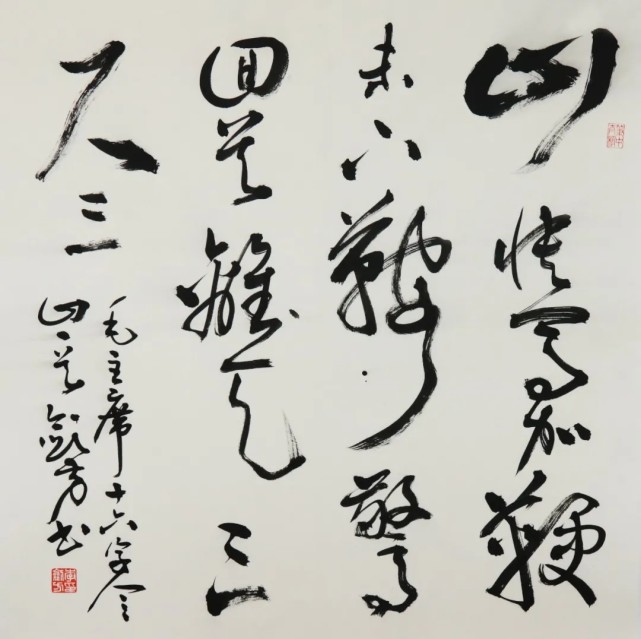 山快馬加鞭
未下鞍驚
回首離天三
尺三
毛主席十六字令
山一首劍书